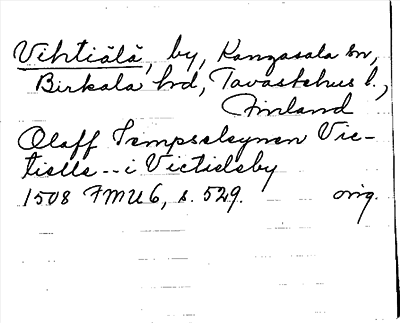 Vihtiälä, by, Kangasala sn,
Birkala hd, Tavastehus l.,
Finland
Olaff Tempseleynen Vic-
tiells -- i Victielsby
1508 FMU6, s. 529. orig.